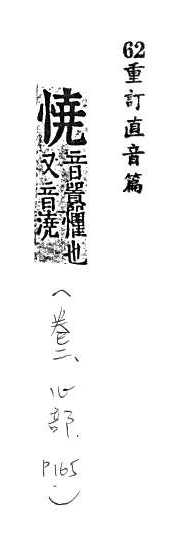 62重訂直音篇
憢音囂懼也
又音澆
(卷二、心部. P165.)